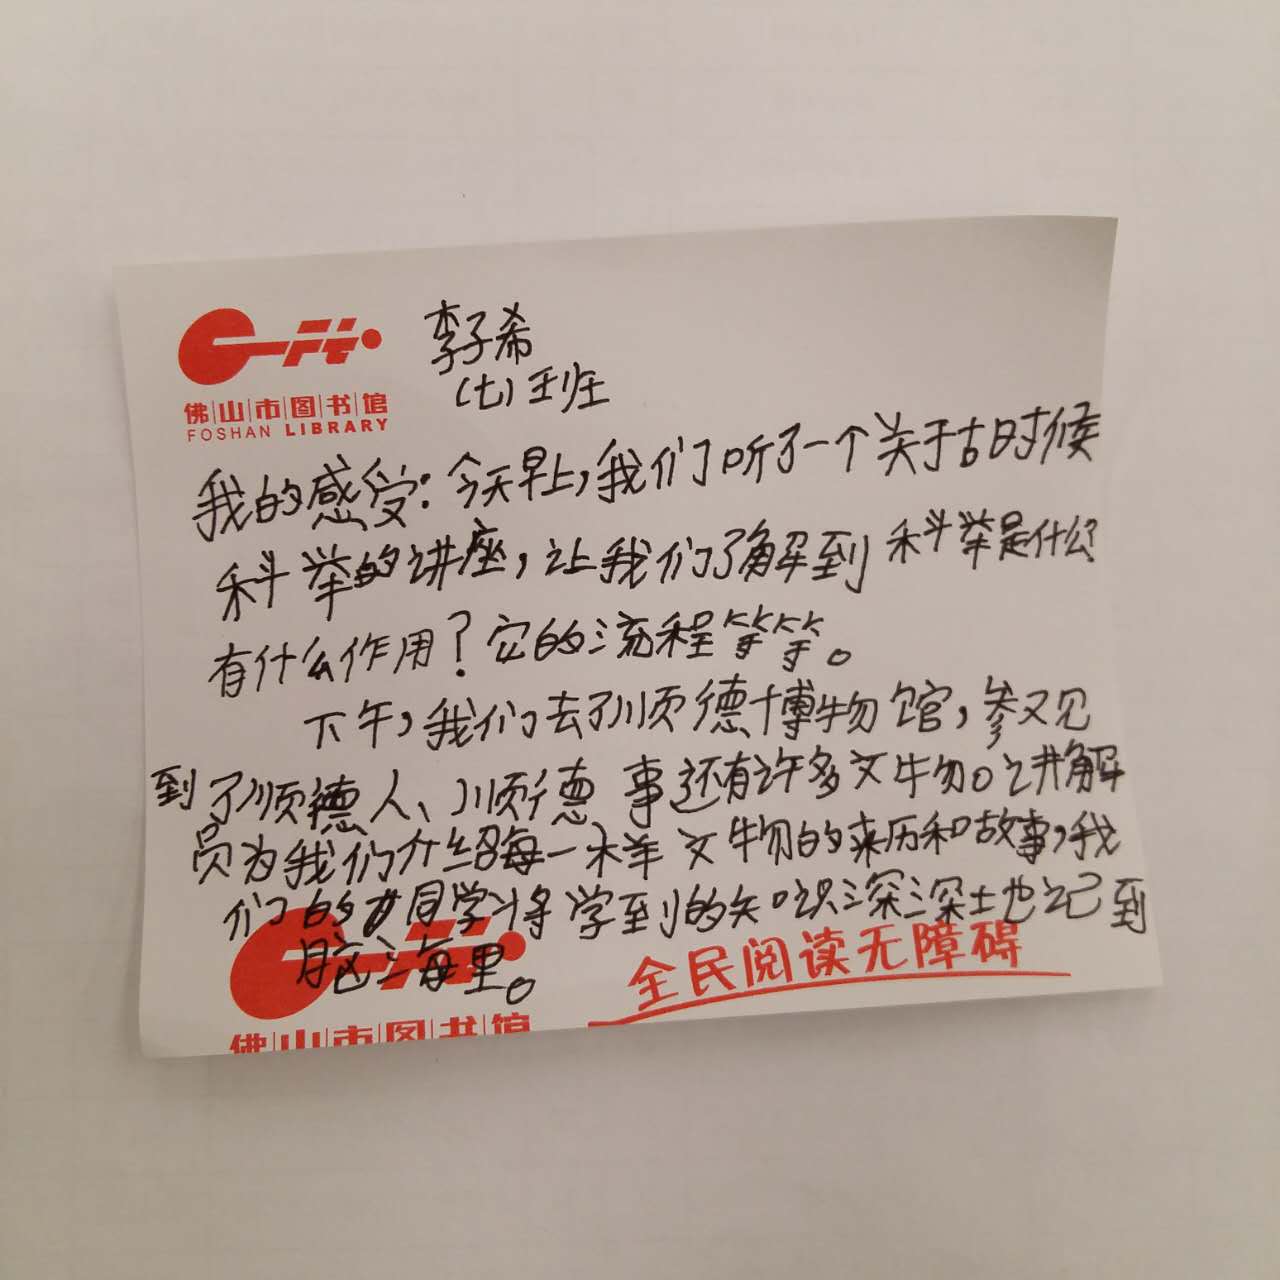 李子希
(七)班
佛山市图书馆
FOSHAN LIBRARY
我的感受:今天早上,我们听了一个关于古时候
科举的讲座,让我们了解到科举是什么
有什么作用?它的流程等等。
下午,我们去了顺德博物馆,参观
到了顺德人、顺德事还有许多文物。讲解
员为我们介绍每一样文物的来历和故事,我
们的同学将学到的知识深深地记到
脑海里。
全民阅读无障碍
佛山市图书馆